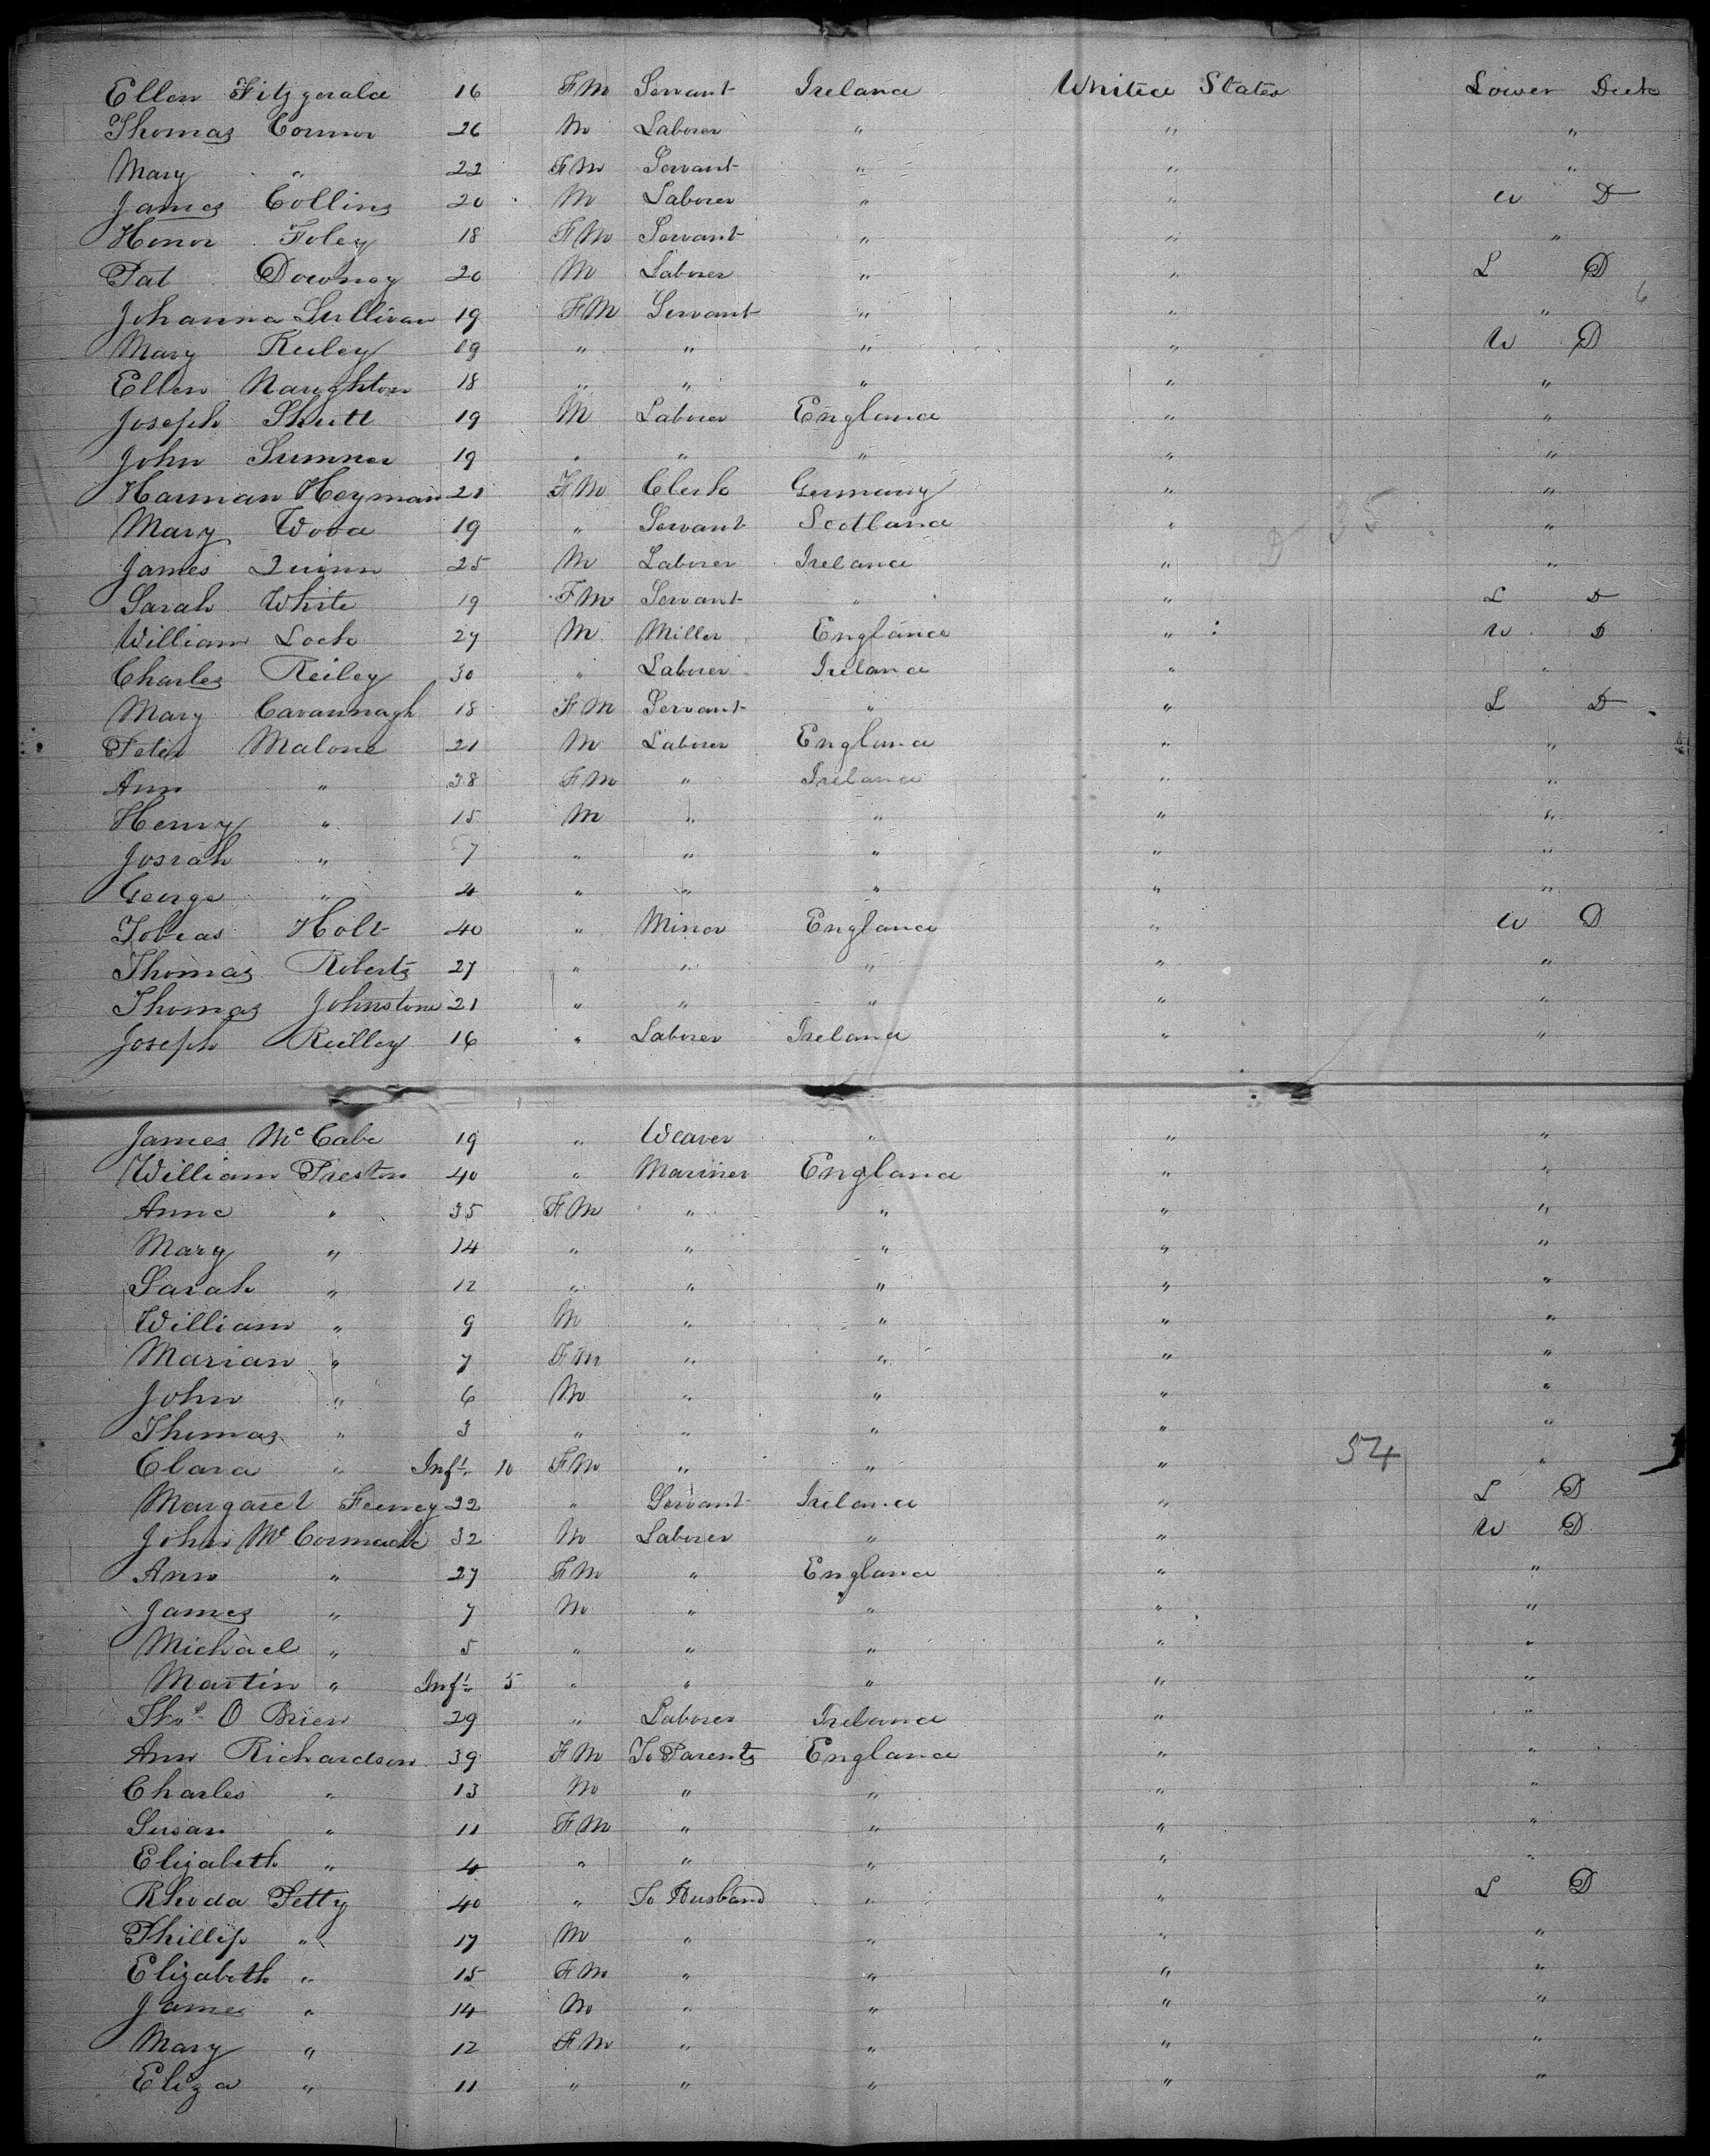 Ellen Fitzgerald 16 FM Servant Ireland United States Lower Deck
Thomas Connor 26 M Laborer " " "
Mary " 22 FM Servant " " "
James Collins 20 M Laborer " " U D
Honor Foley 18 FM Servant " " "
Pat Downey 20 M Laborer " " L D
6
Johanna Sullivan 19 FM Servant " " "
Mary Reiley 19 " " " " U D
Ellen Naughton 18 " " " " "
Joseph Shutt 19 M Laborer England " "
John Sumner 19 " " " " "
Harman Heyman 21 FM Clerk Germany " "
Mary Wood 19 " Servant Scotland " "
James Quinn 25 M Laborer Ireland " "
Sarah White 19 FM Servant " " L D
William Lock 27 M Miller England " U D
Charles Reiley 30 " Laborer Ireland " "
Mary Cavannagh 18 FM Servant " " L D
Peter Malone 21 M Laborer England " "
Ann " 38 FM " Ireland " "
Henry " 15 M " " " "
Josiah " 7 " " " " "
George " 4 " " " " "
Tobias Holt 40 " Miner England " U D
Thomas Roberts 27 " " " " "
Thomas Johnstone 21 " " " " "
Joseph Reilley 16 " Laborer Ireland " "
James McCabe 19 " Weaver " " "
William Preston 40 " Mariner England " "
Anne " 35 FM " " " "
Mary " 14 " " " " "
Sarah " 12 " " " " "
William " 9 M " " " "
Marian " 7 FM " " " "
John " 6 M " " " "
Thomas " 3 " " " " "
Clara " Inft 10 FM " " " 54 "
Margaret Feeney 22 " Servant Ireland " L D
John McCormack 32 M Laborer " " U D
Ann " 27 FM " England " "
James " 7 M " " " "
Michael " 5 " " " " "
Martin " Inft 5 " " " " "
Thos O Brien 29 " Laborer Ireland " "
Ann Richardson 39 FM To Parents England " "
Charles " 13 M " " " "
Susan " 11 FM " " " "
Elizabeth " 4 " " " " "
Rhoda Petty 40 " To Husband " " L D
Phillip " 17 M " " " "
Elizabeth " 15 FM " " " "
James " 14 M " " " "
Mary " 12 FM " " " "
Eliza " 11 " " " " "